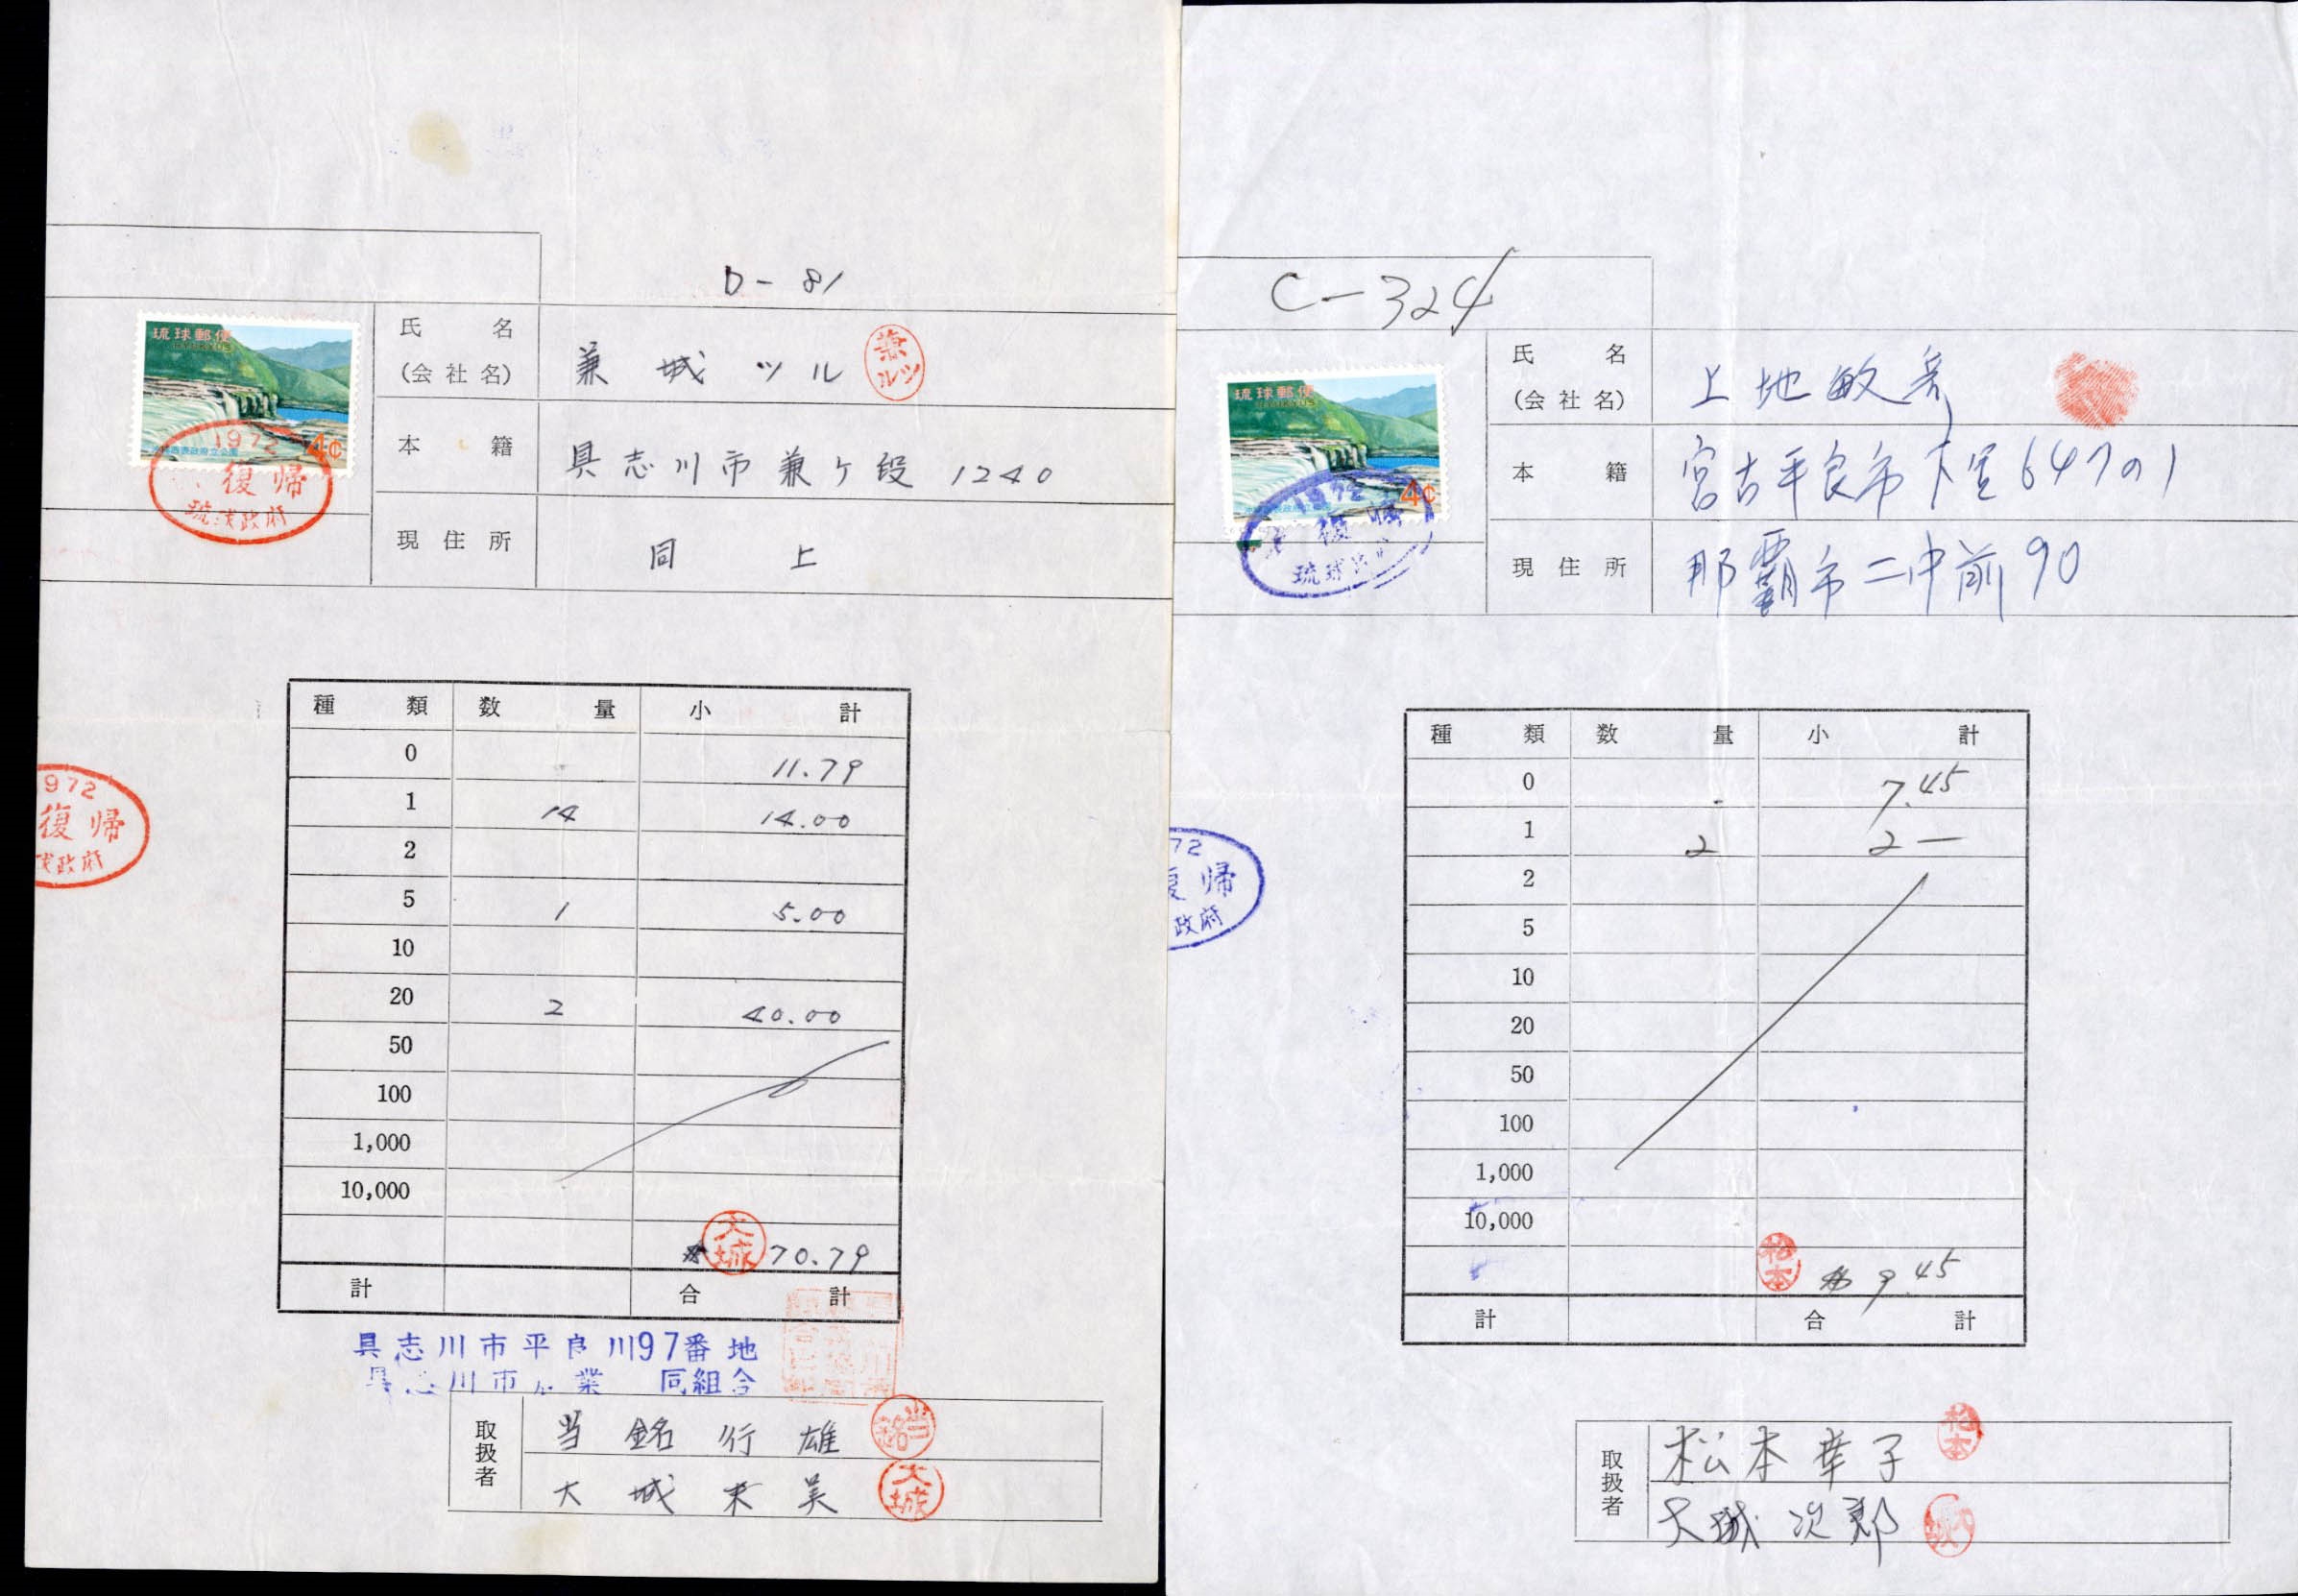 D-81
琉球郵便
RYUKYUS
4¢
西表政府立公園
1972
復帰
琉球政府
氏名
(会社名)
兼城ツル
兼ツル
本籍
具志川市兼ケ段1240
現住所
同上
種類 数量 小計
0 11.79
1 14 14.00
2
5 1 5.00
10
20 2 40.00
50
100
1,000
10,000
大城
70.79
計 合計
972
復帰
政府
具志川市平良川97番地
川市 業 同組合
取扱者
当銘行雄
当銘
大城末美
大城
C-324
琉球郵便
RYUKYUS
4¢
1972
復帰
琉球
氏名
(会社名)
上地敏
本籍
宮古平良市下里647の1
現住所
那覇市二中前90
種類 数量 小計
0 7.45
1 2 2—
2
5
10
20
50
100
1,000
10,000
松本
9.45
計 合計
72
復帰
政府
取扱者
松本幸子
松本
大城次郎